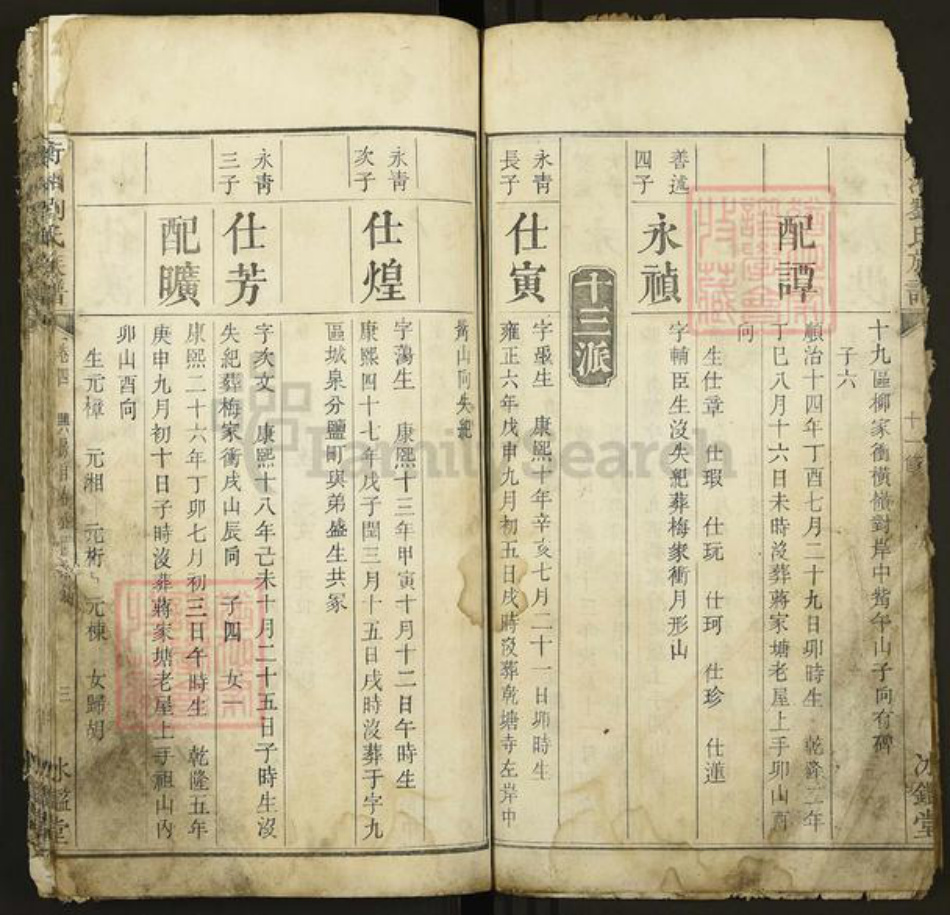 十九區柳家衝橫嶺對岸中嘴午山子向有碑
子六
配譚
順治十四年丁酉七月二十九日卯時生 乾隆二年
丁巳八月十六日未時沒葬蔣家塘老屋上手卯山酉
向
生仕章 仕瑕 仕玩 仕珂 仕珍 仕蓮
善述
四子
永禎
字輔臣生沒失紀葬梅家衝月形山
十三派
永青
長子
仕寅
字 生 康熙十年辛亥七月二十一日卯時生
雍正六年戊申九月初五日戌時沒葬乾塘寺左岸中
衡山向失紀
永青
次子
仕煌
字蕩生 康熙十三年甲寅十月十二日午時生
康熙四十七年戊子閏三月十五日戌時沒葬于字九
區城泉分鹽町與弟盛生共冢
永青
三子
仕芳
字次文 康熙十八年己未十月二十五日子時生沒
失紀葬梅家衝戌山辰向 子四 女一
配曠
康熙二十六年丁卯七月初三日午時生 乾隆五年
庚申九月初十日子時沒葬蔣家塘老屋上手祖山內
卯山酉向
生元樟 元湘 元桁 元棟 女歸胡
衡湘劉氏族譜
卷四
三
冰鑑堂
FamilySearch